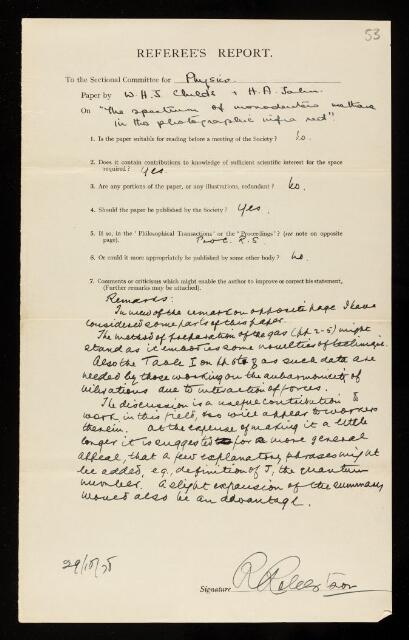 53
REFEREE'S REPORT.
To the Sectional Committee for Physics.
Paper by W. H. J. Childs & H. A. Jahn.
On "The spectrum of monodeutero methane
in the photographic infra red".
1. Is the paper suitable for reading before a meeting of the Society? No.
2. Does it contain contributions to knowledge of sufficient scientific interest for the space
required? Yes.
3. Are any portions of the paper, or any illustrations, redundant? No.
4. Should the paper be published by the Society? Yes.
5. If so, in the 'Philosophical Transactions' or the 'Proceedings'? (see note on opposite
page). Proc. R.S
6. Or could it more appropriately be published by some other body? No.
7. Comments or criticisms which might enable the author to improve or correct his statement,
(Further remarks may be attached).
Remarks:
In view of the remark on opposite page I have
considered some parts of this paper.
The method of preparation of the gas (pp. 2-5) might
stand as it embodies some novelties of technique.
Also the Table I on pp 6 to 8 as such data are
needed by those working on the anharmonicity of
vibrations due to interaction of forces.
The discussion is a useful contribution to
work in this field, & will appear to workers
therein. At the expense of making it a little
longer it is suggested for a more general
appeal, that a few explanatory phrases might
be added, e.g., definition of J, the quantum
number. A slight expansion of the summary
would also be an advantage.
29/10/35
Signature R. Robertson